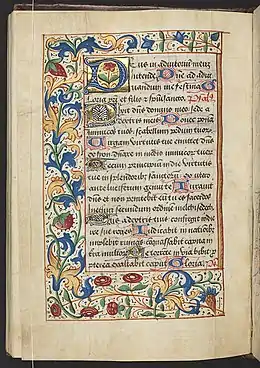 Deus in adiutoriũ meuz
intende. Dñe ad adiu
uandum me festina. G
loria p̃ri et filio et sp̃ui sancto. Psal
Dixit dñs domino meo sede a
dextris meis Donec ponã
inimicos tuos scabellum pedum tuoꝝ
Virgam virtutis tue emittet dñs
ex syon dñare in medio inimicoꝝ tuoꝝ
Tecum principiũ in die virtutis
tue in splendoribꝰ sanctoꝝ ex utero
ante luciferum genui te Iurauit
dñs et non penitebit eũ tu es sacerdos
in eternũ secundum ordinẽ melchisedech
Dñs a dextris tuis confregit in die
ire sue reges Iudicabit in nationibꝰ
implebit ruinas conquassabit capita in
terra multorꝝ De torrente in via bibet p
pterea exaltabit caput Gloria